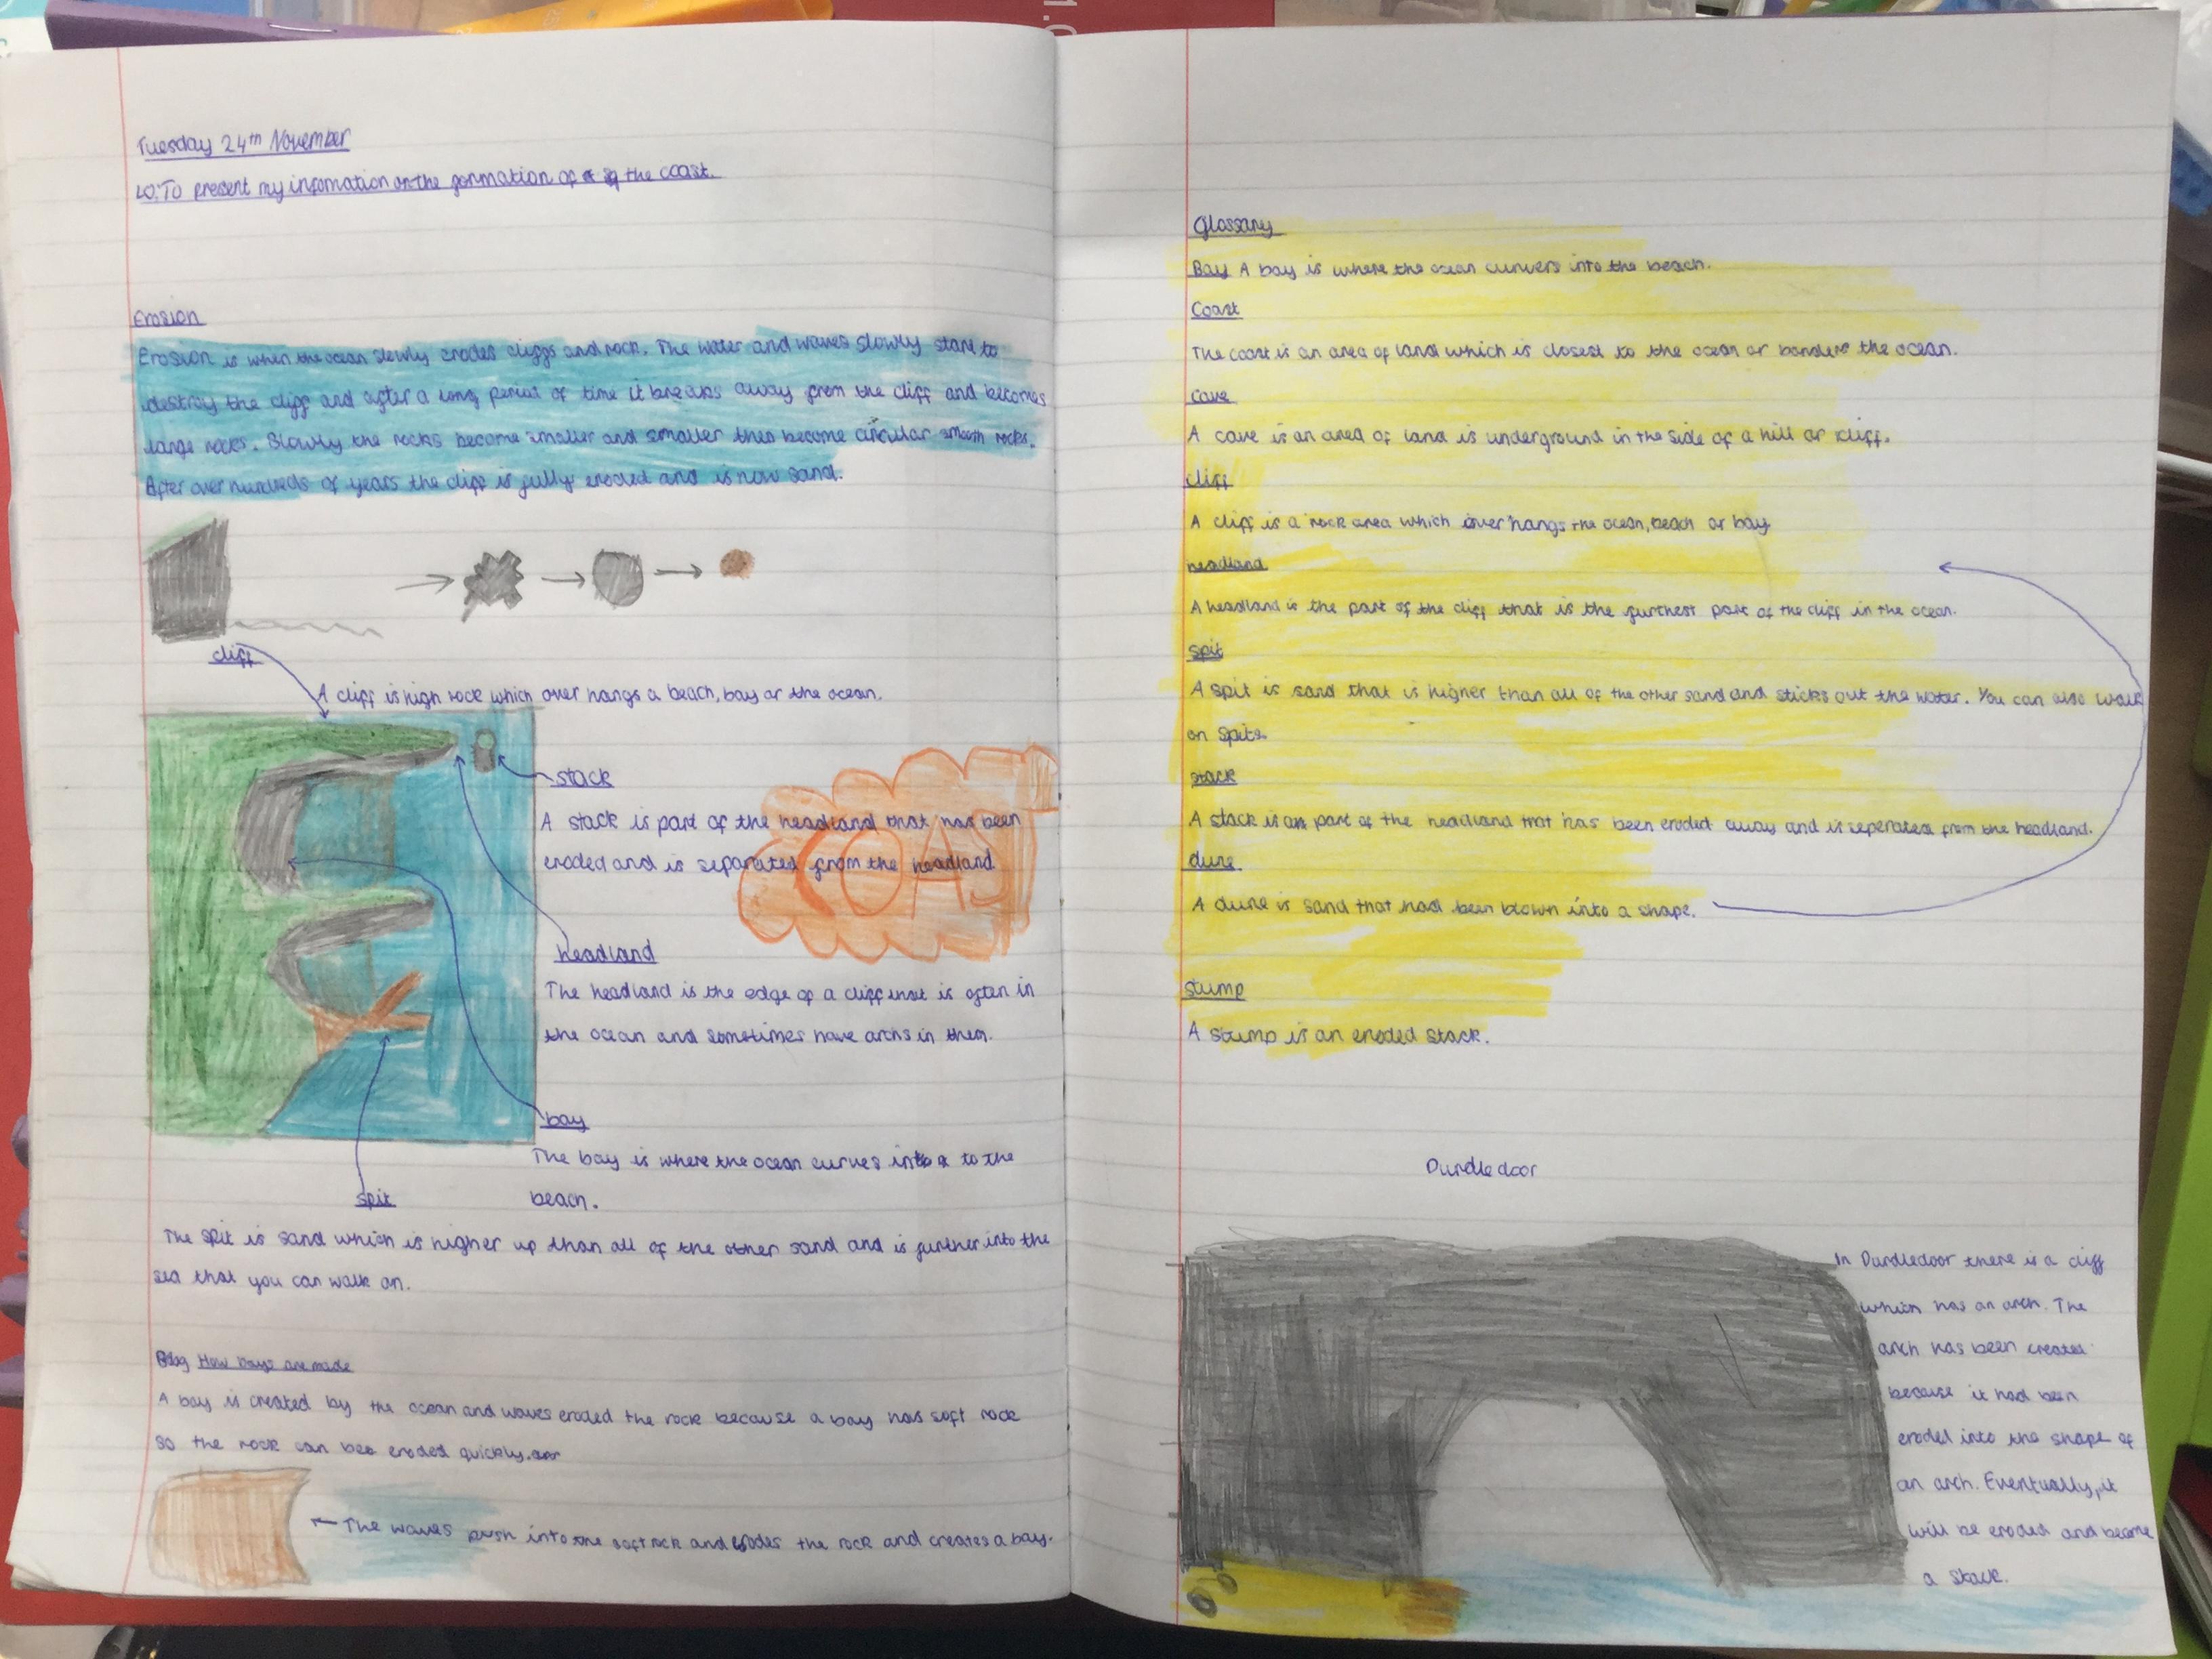 Tuesday 24th November
LO: To present my infomation on the formation of the coast.
Erosion
Erosion is when the ocean slowly erodes cliffs and rock. The water and waves slowly start to
destroy the cliff and after a long period of time it breaks away from the cliff and becomes
large rocks. Slowly the rocks become smaller and smaller then become circular smooth rocks.
After over hundreds of years the cliff is fully eroded and is now sand.
cliff
A cliff is high rock which over hangs a beach, bay or the ocean.
stack
A stack is part of the headland that has been
eroded and is separated from the headland
COAST
headland
The headland is the edge of a cliff that is often in
the ocean and sometimes have archs in them.
bay
The bay is where the ocean curves into to the
beach.
spit
The spit is sand which is higher up than all of the other sand and is further into the
sea that you can walk on.
How bays are made
A bay is created by the ocean and waves eroded the rock because a bay has soft rock
so the rock can be eroded quickly.
The waves push into the soft rock and erodes the rock and creates a bay.
Glossary
Bay A bay is where the ocean curvers into the beach.
Coast
The coast is an area of land which is closest to the ocean or borders the ocean.
cave
A cave is an area of land is underground in the side of a hill or cliff.
cliff
A cliff is a rock area which over hangs the ocean, beach or bay
headland
A headland is the part of the cliff that is the furthest part of the cliff in the ocean.
spit
A spit is sand that is higher than all of the other sand and sticks out the water. You can also walk
on spits.
stack
A stack is a part of the headland that has been eroded away and is seperated from the headland.
dune
A dune is sand that had been blown into a shape.
stump
A stump is an eroded stack.
Durdledoor
In Durdledoor there is a cliff
which has an arch. The
arch has been created
because it had been
eroded into the shape of
an arch. Eventually, it
will be eroded and become
a stack.